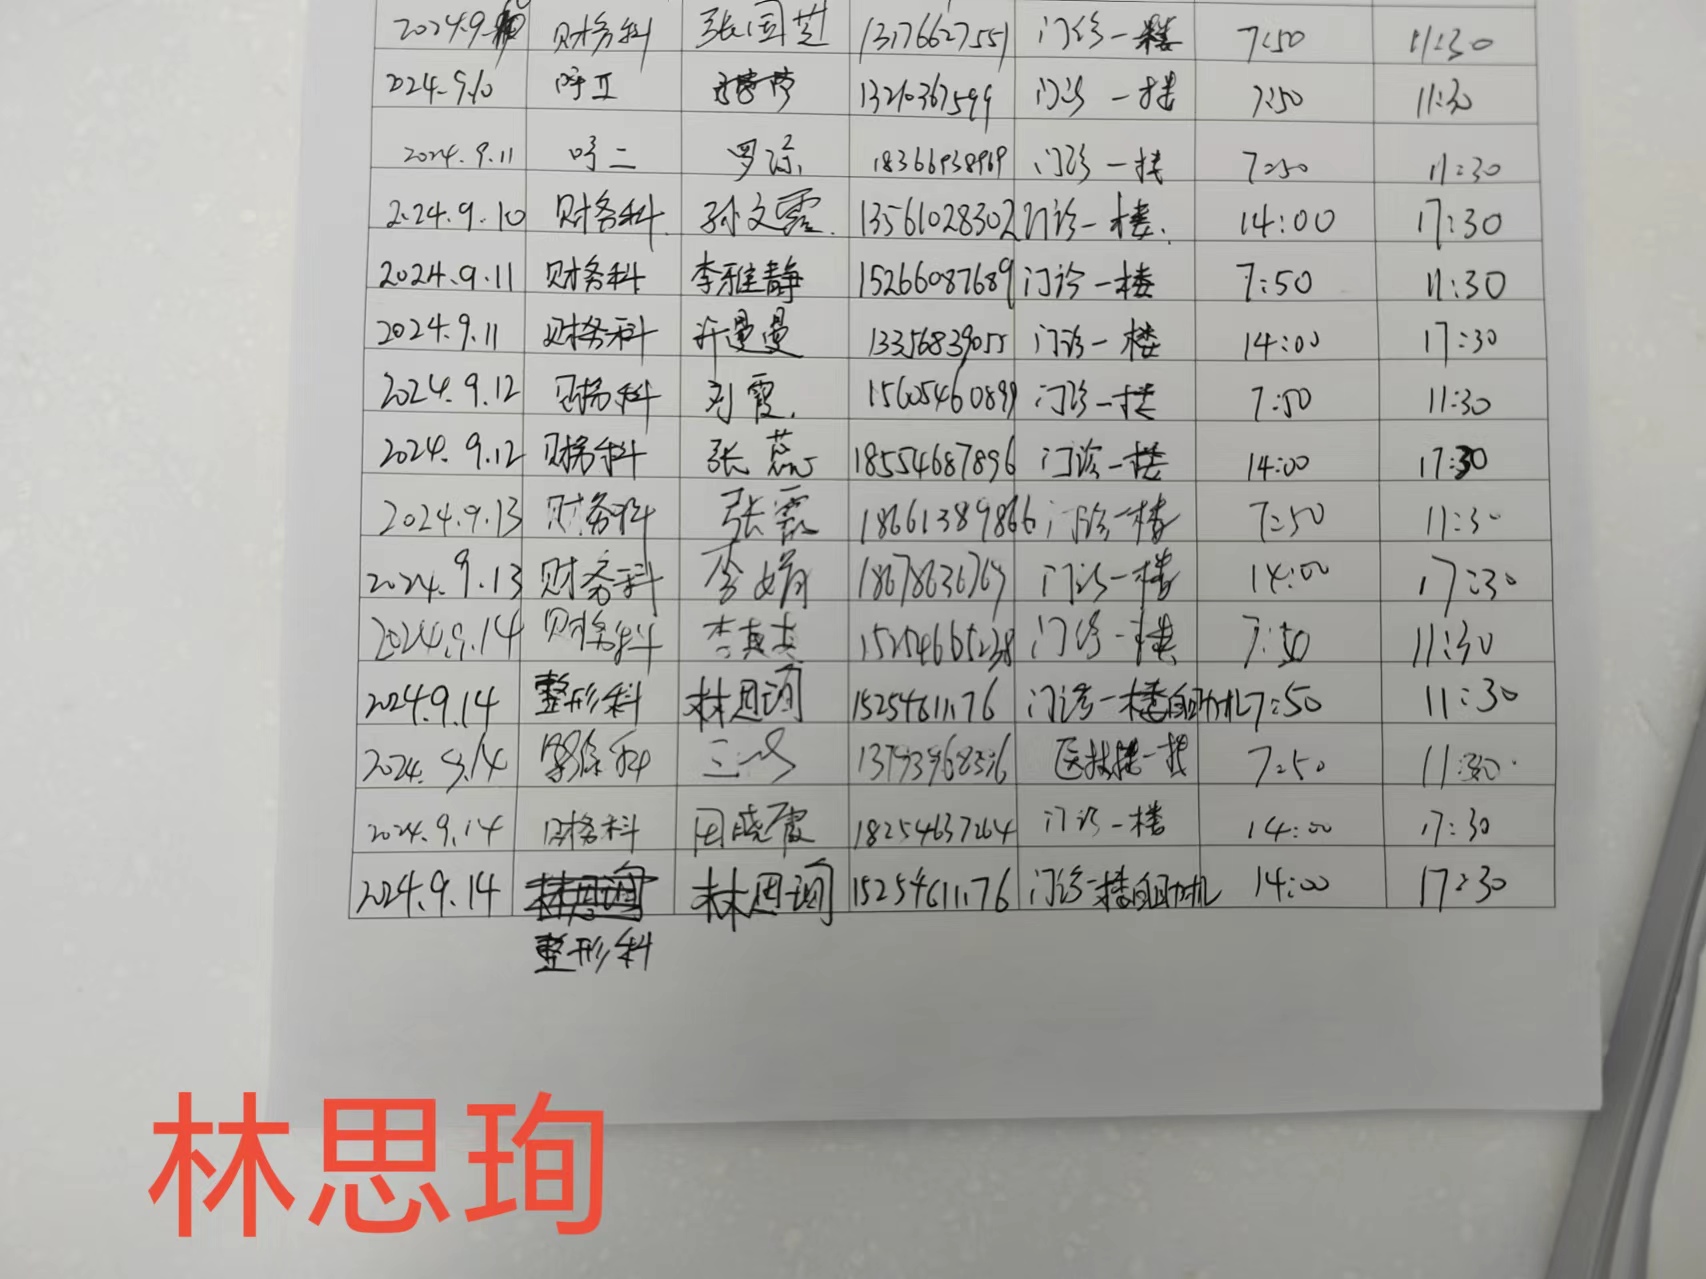 2024.9.10 财务科 张国芝 13176627551 门诊一楼 7:50 11:30
2024.9.10 呼II 13210367599 门诊一楼 7:50 11:30
2024.9.11 呼二 罗琼 18366938969 门诊一楼 7:50 11:30
2024.9.10 财务科 孙文霞 13561028302 门诊一楼 14:00 17:30
2024.9.11 财务科 李雅静 15266087689 门诊一楼 7:50 11:30
2024.9.11 财务科 许曼曼 13356839055 门诊一楼 14:00 17:30
2024.9.12 财务科 刘霞 15605460899 门诊一楼 7:50 11:30
2024.9.12 财务科 张蕊 18554687896 门诊一楼 14:00 17:30
2024.9.13 财务科 张霞 18661389866 门诊一楼 7:50 11:30
2024.9.13 财务科 李娟 门诊一楼 14:00 17:30
2024.9.14 财务科 15254665238 门诊一楼 7:50 11:30
2024.9.14 整形科 林思珣 15254611176 门诊一楼自助机 7:50 11:30
2024.9.14 医技楼一楼 7:50 11:30
2024.9.14 财务科 田晓霞 18254637264 门诊一楼 14:00 17:30
2024.9.14 林思珣 15254611176 门诊一楼自助机 14:00 17:30
整形科
林思珣